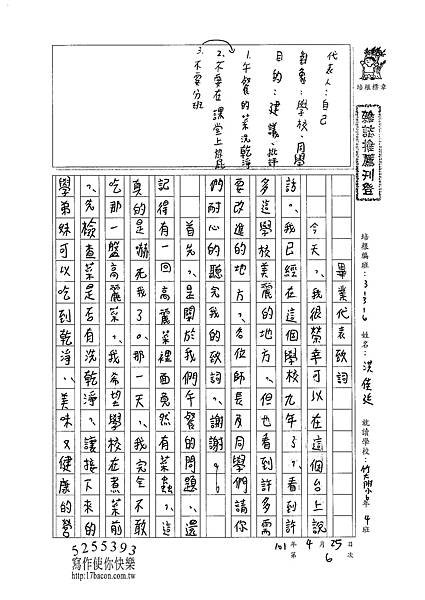 代表人：自己
對象：學校、同學
目的：建議、批評
1.午餐的菜洗乾淨
2.不要在課堂上搗蛋
3.不要分班
畢業代表致詞
今天，我很榮幸可以在這個台上說
話。我已經在這個學校九年了，看到許
多這學校美麗的地方，但也看到許多需
要改進的地方，各位師長及同學們請你
們耐心的聽完我的致詞，謝謝。
首先，是關於我們午餐的問題，還
記得有一回高麗菜裡面竟然有菜蟲，這
真的是嚇死我了。那一天，我完全不敢
吃那一盤高麗菜。我希望學校在煮菜前
，先檢查菜是否有洗乾淨，讓接下來的
學弟妹可以吃到乾淨、美味又健康的營
培根標章
雜誌推薦刊登
培根編班：
姓名：洪
就讀學校：竹大附小
4班
101年4月25日
第6次
5255393
寫作使你快樂
http://17bacon.com.tw/